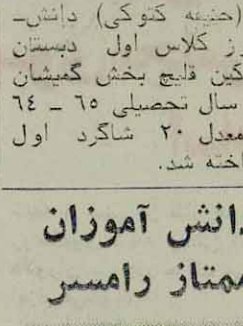 (حنیفه کتوکی) دانش‌ـ
ز کلاس اول دبستان
کین قلیچ بخش گمیشان
سال تحصیلی ٦٥ ـ ٦٤
معدل ۲۰ شاگرد اول
اخته شد.
دانش آموزان
ممتاز رامسر